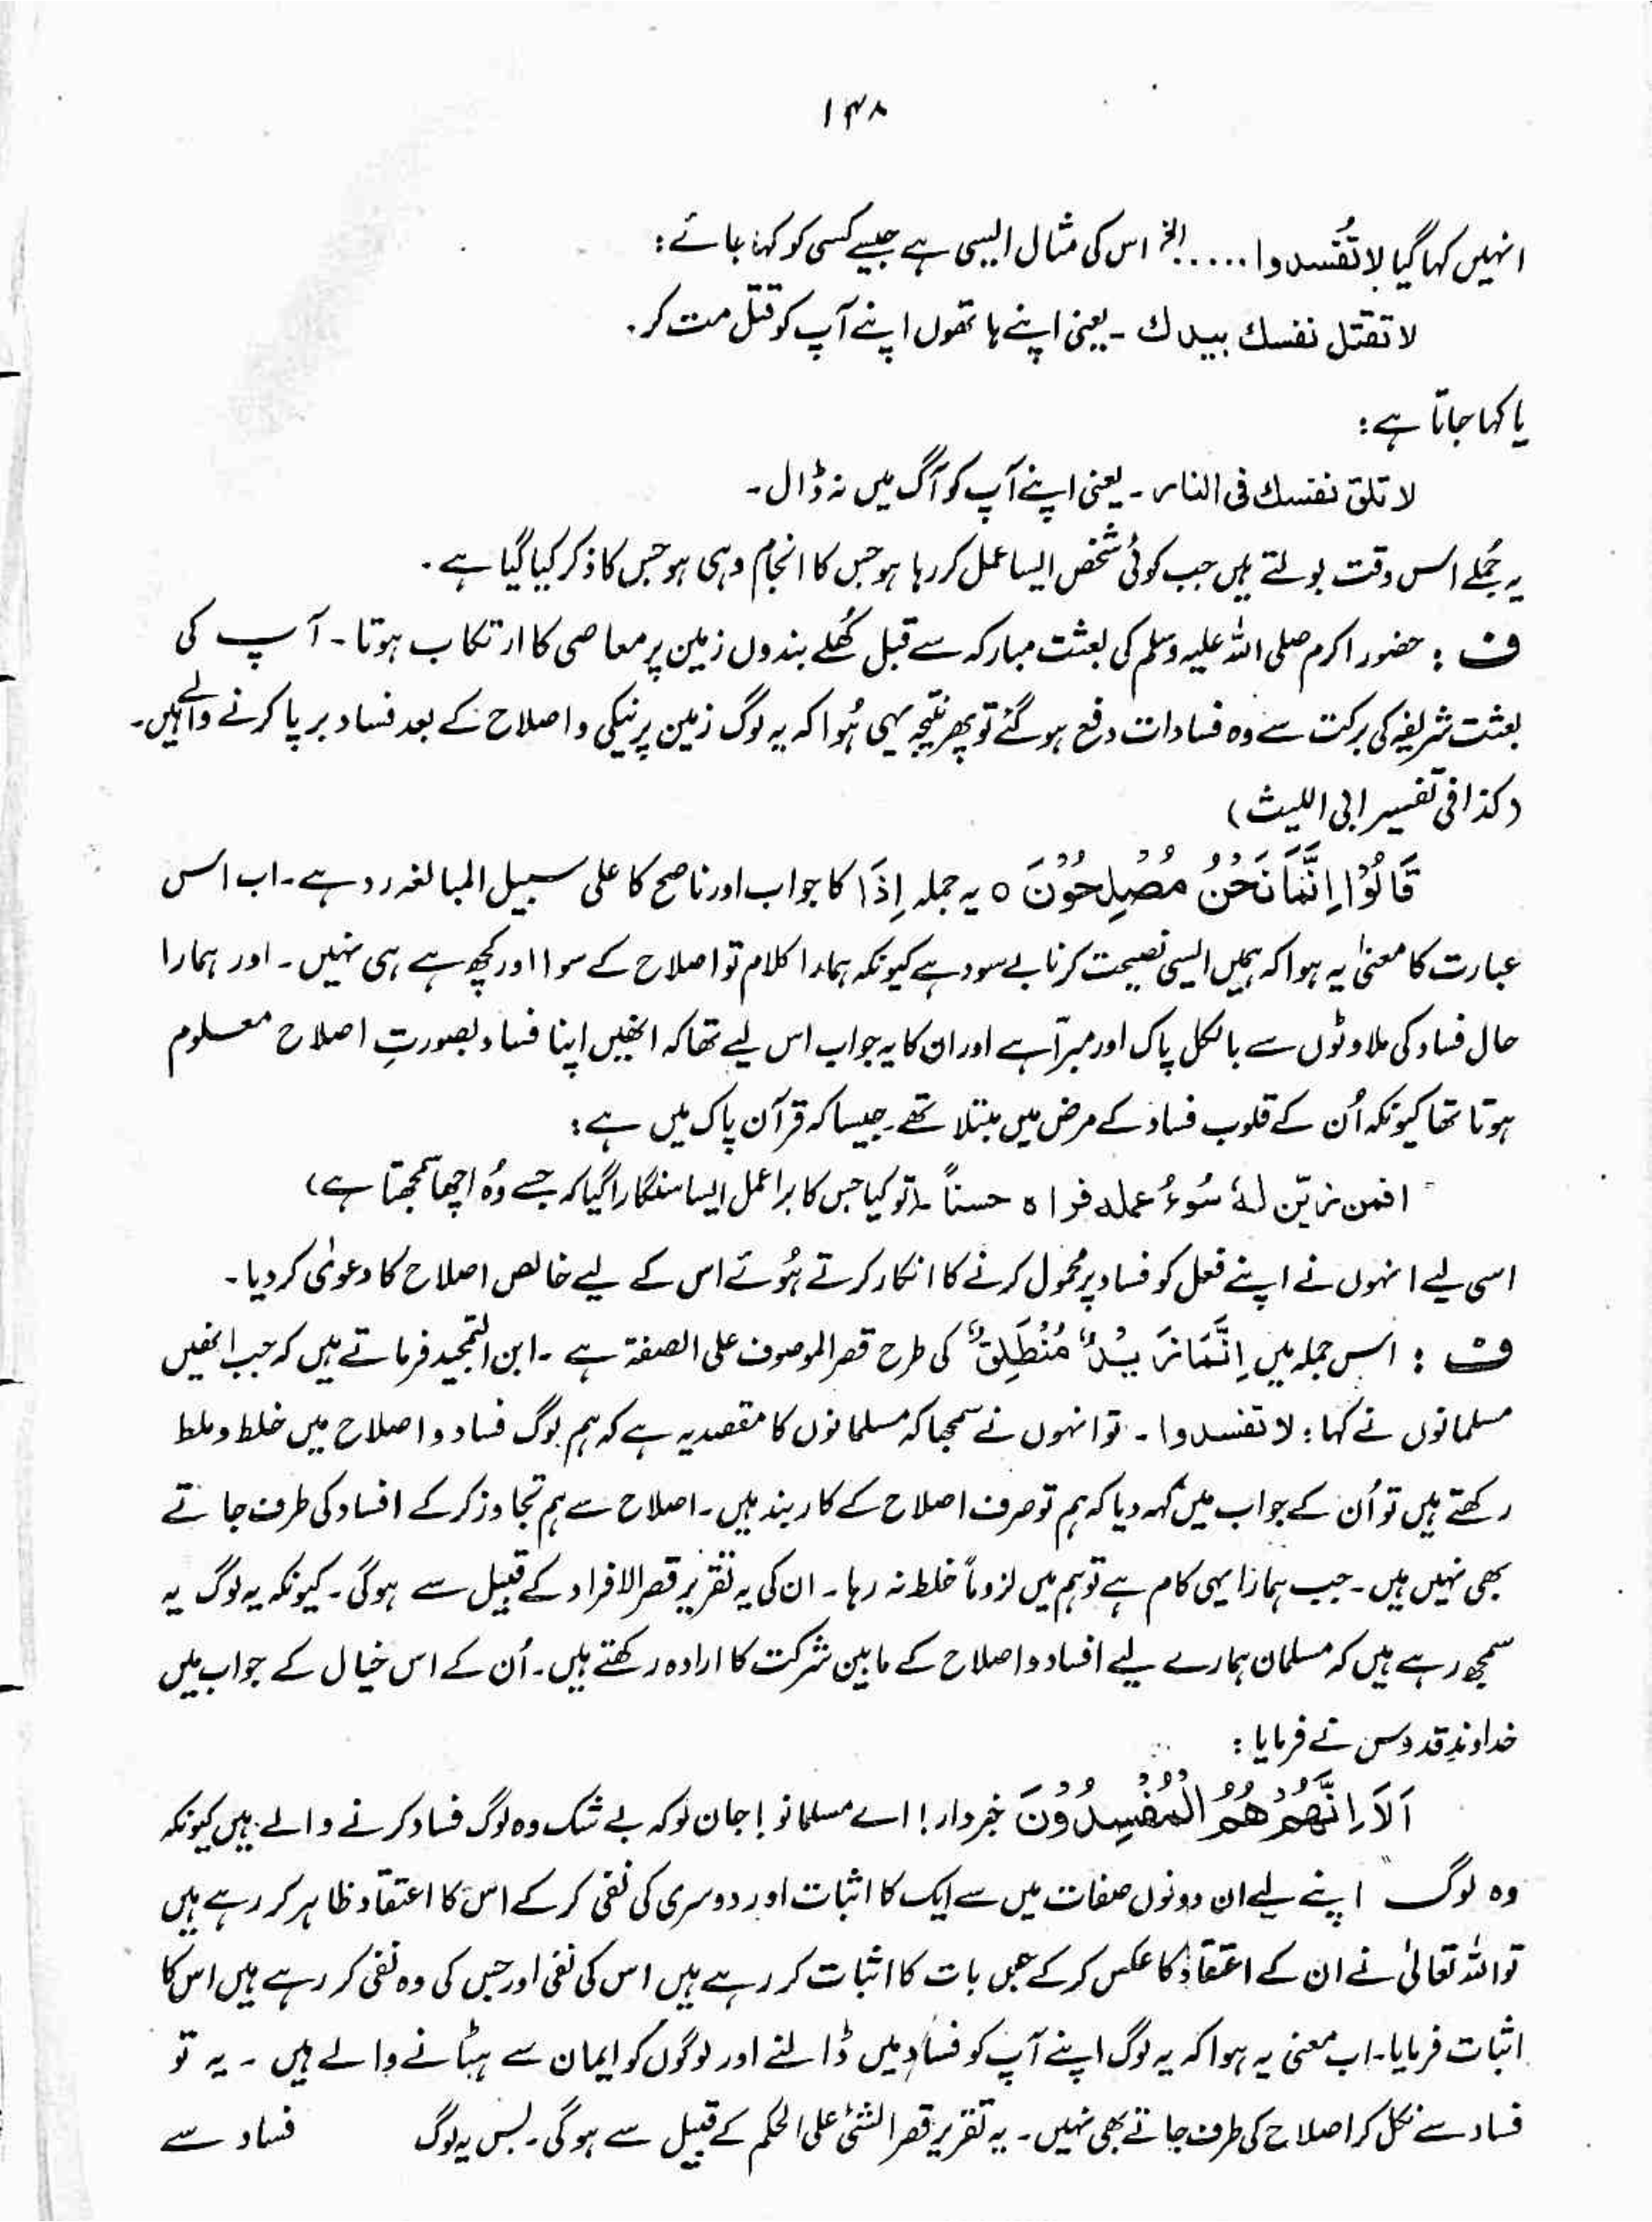 ۱۴۸
انہیں کہا گیا لا تُفسدوا ..... الخ اس کی مثال ایسی ہے جیسے کسی کو کہا جائے :
لا تقتل نفسك بيدك ۔ یعنی اپنے ہاتھوں اپنے آپ کو قتل مت کر ۔
یا کہا جاتا ہے :
لا تلق نفسك فی النار ۔ یعنی اپنے آپ کو آگ میں نہ ڈال ۔
یہ جُملے اس وقت بولتے ہیں جب کوئی شخص ایسا عمل کر رہا ہو جس کا انجام وہی ہو جس کا ذکر کیا گیا ہے ۔
ف : حضور اکرم صلی اللہ علیہ وسلم کی بعثت مبارکہ سے قبل کُھلے بندوں زمین پر معاصی کا ارتکاب ہوتا ۔ آپ کی
بعثت شریفہ کی برکت سے وہ فسادات دفع ہو گئے تو پھر نتیجہ یہی ہُوا کہ یہ لوگ زمین پر نیکی و اصلاح کے بعد فساد برپا کرنے والے ہیں ۔
(کذا فی تفسیر ابی اللیث)
قَالُوْٓا اِنَّمَا نَحْنُ مُصْلِحُوْنَ ۝ یہ جملہ اِذَا کا جواب اور ناصح کا علی سبیل المبالغہ رد ہے ۔ اب اس
عبارت کا معنیٰ یہ ہوا کہ ہمیں ایسی نصیحت کرنا بے سود ہے کیونکہ ہمارا کلام تو اصلاح کے سوا اور کچھ ہے ہی نہیں ۔ اور ہمارا
حال فساد کی ملاوٹوں سے بالکل پاک اور مبرّا ہے اور ان کا یہ جواب اس لیے تھا کہ انھیں اپنا فساد بصورتِ اصلاح معلوم
ہوتا تھا کیونکہ اُن کے قلوب فساد کے مرض میں مبتلا تھے ۔ جیسا کہ قرآن پاک میں ہے :
افمن زیّن لهٗ سُوءُ عمله فراه حسناً ۔ (تو کیا جس کا برا عمل ایسا سنگارا گیا کہ جسے وُہ اچھا سمجھتا ہے)
اسی لیے انہوں نے اپنے فعل کو فساد پر محمول کرنے کا انکار کرتے ہُوئے اس کے لیے خالص اصلاح کا دعوٰی کر دیا ۔
ف : اس جملہ میں اِنَّمَا زَیْدٌ مُنْطَلِقٌ کی طرح قصر الموصوف علی الصفۃ ہے ۔ ابن التمجید فرماتے ہیں کہ جب انھیں
مسلمانوں نے کہا : لا تفسدوا ۔ تو انہوں نے سمجھا کہ مسلمانوں کا مقصد یہ ہے کہ ہم لوگ فساد و اصلاح میں خلط و ملط
رکھتے ہیں تو اُن کے جواب میں کہہ دیا کہ ہم تو صرف اصلاح کے کاربند ہیں ۔ اصلاح سے ہم تجاوز کر کے افساد کی طرف جاتے
بھی نہیں ہیں ۔ جب ہمارا یہی کام ہے تو ہم میں لزوماً خلط نہ رہا ۔ ان کی یہ تقریر قصر الافراد کے قبیل سے ہوگی ۔ کیونکہ یہ لوگ یہ
سمجھ رہے ہیں کہ مسلمان ہمارے لیے افساد و اصلاح کے مابین شرکت کا ارادہ رکھتے ہیں ۔ اُن کے اس خیال کے جواب میں
خداوندِ قدوس نے فرمایا :
اَلَآ اِنَّهُمْ هُمُ الْمُفْسِدُوْنَ خبردار ! اے مسلمانو ! جان لو کہ بے شک وہ لوگ فساد کرنے والے ہیں کیونکہ
وہ لوگ اپنے لیے ان دونوں صفات میں سے ایک کا اثبات اور دوسری کی نفی کر کے اس کا اعتقاد ظاہر کر رہے ہیں
تو اللہ تعالیٰ نے ان کے اعتقاد کا عکس کر کے جس بات کا اثبات کر رہے ہیں اس کی نفی اور جس کی وہ نفی کر رہے ہیں اس کا
اثبات فرمایا ۔ اب معنی یہ ہوا کہ یہ لوگ اپنے آپ کو فساد میں ڈالنے اور لوگوں کو ایمان سے ہٹانے والے ہیں ۔ یہ تو
فساد سے نکل کر اصلاح کی طرف جاتے بھی نہیں ۔ یہ تقریر قصر الشئ علی الحکم کے قبیل سے ہوگی ۔ بس یہ لوگ فساد سے